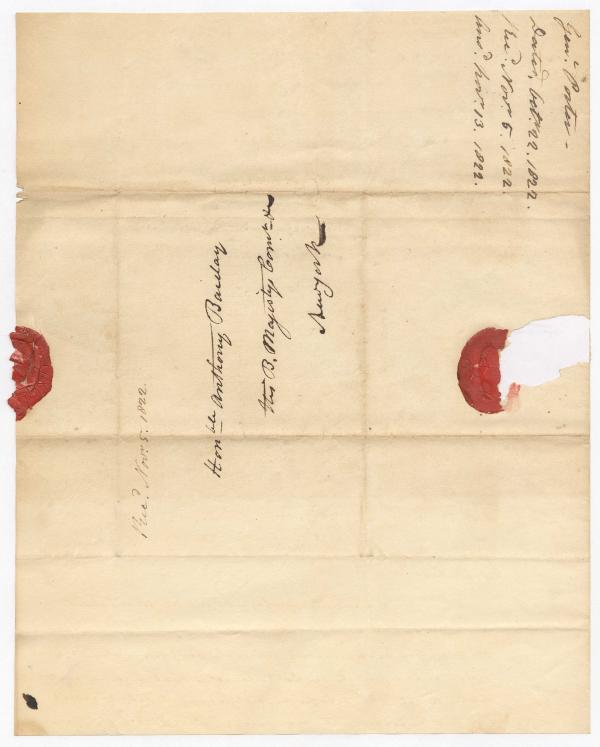 Gen.l Porter -
Dated, Oct. 22. 1822.
Rec.d Nov. 5. 1822.
Ans.d Nov. 13. 1822.
Honble Anthony Barclay
His B. Majestys Comr &c
New york
Rec.d Nov. 5. 1822.